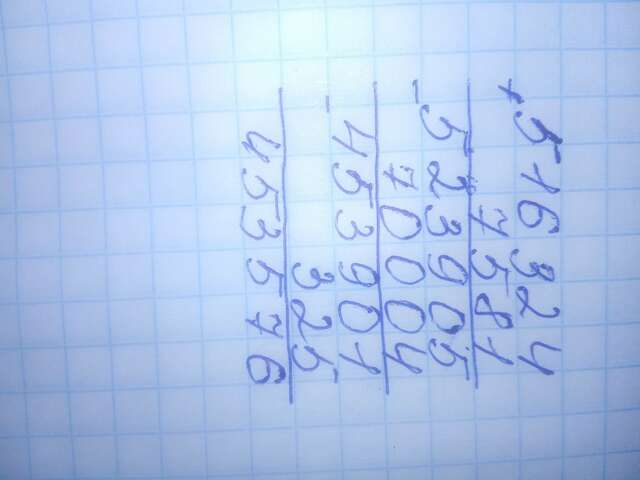 + 516324
7581
- 523905
70004
- 453901
325
453576